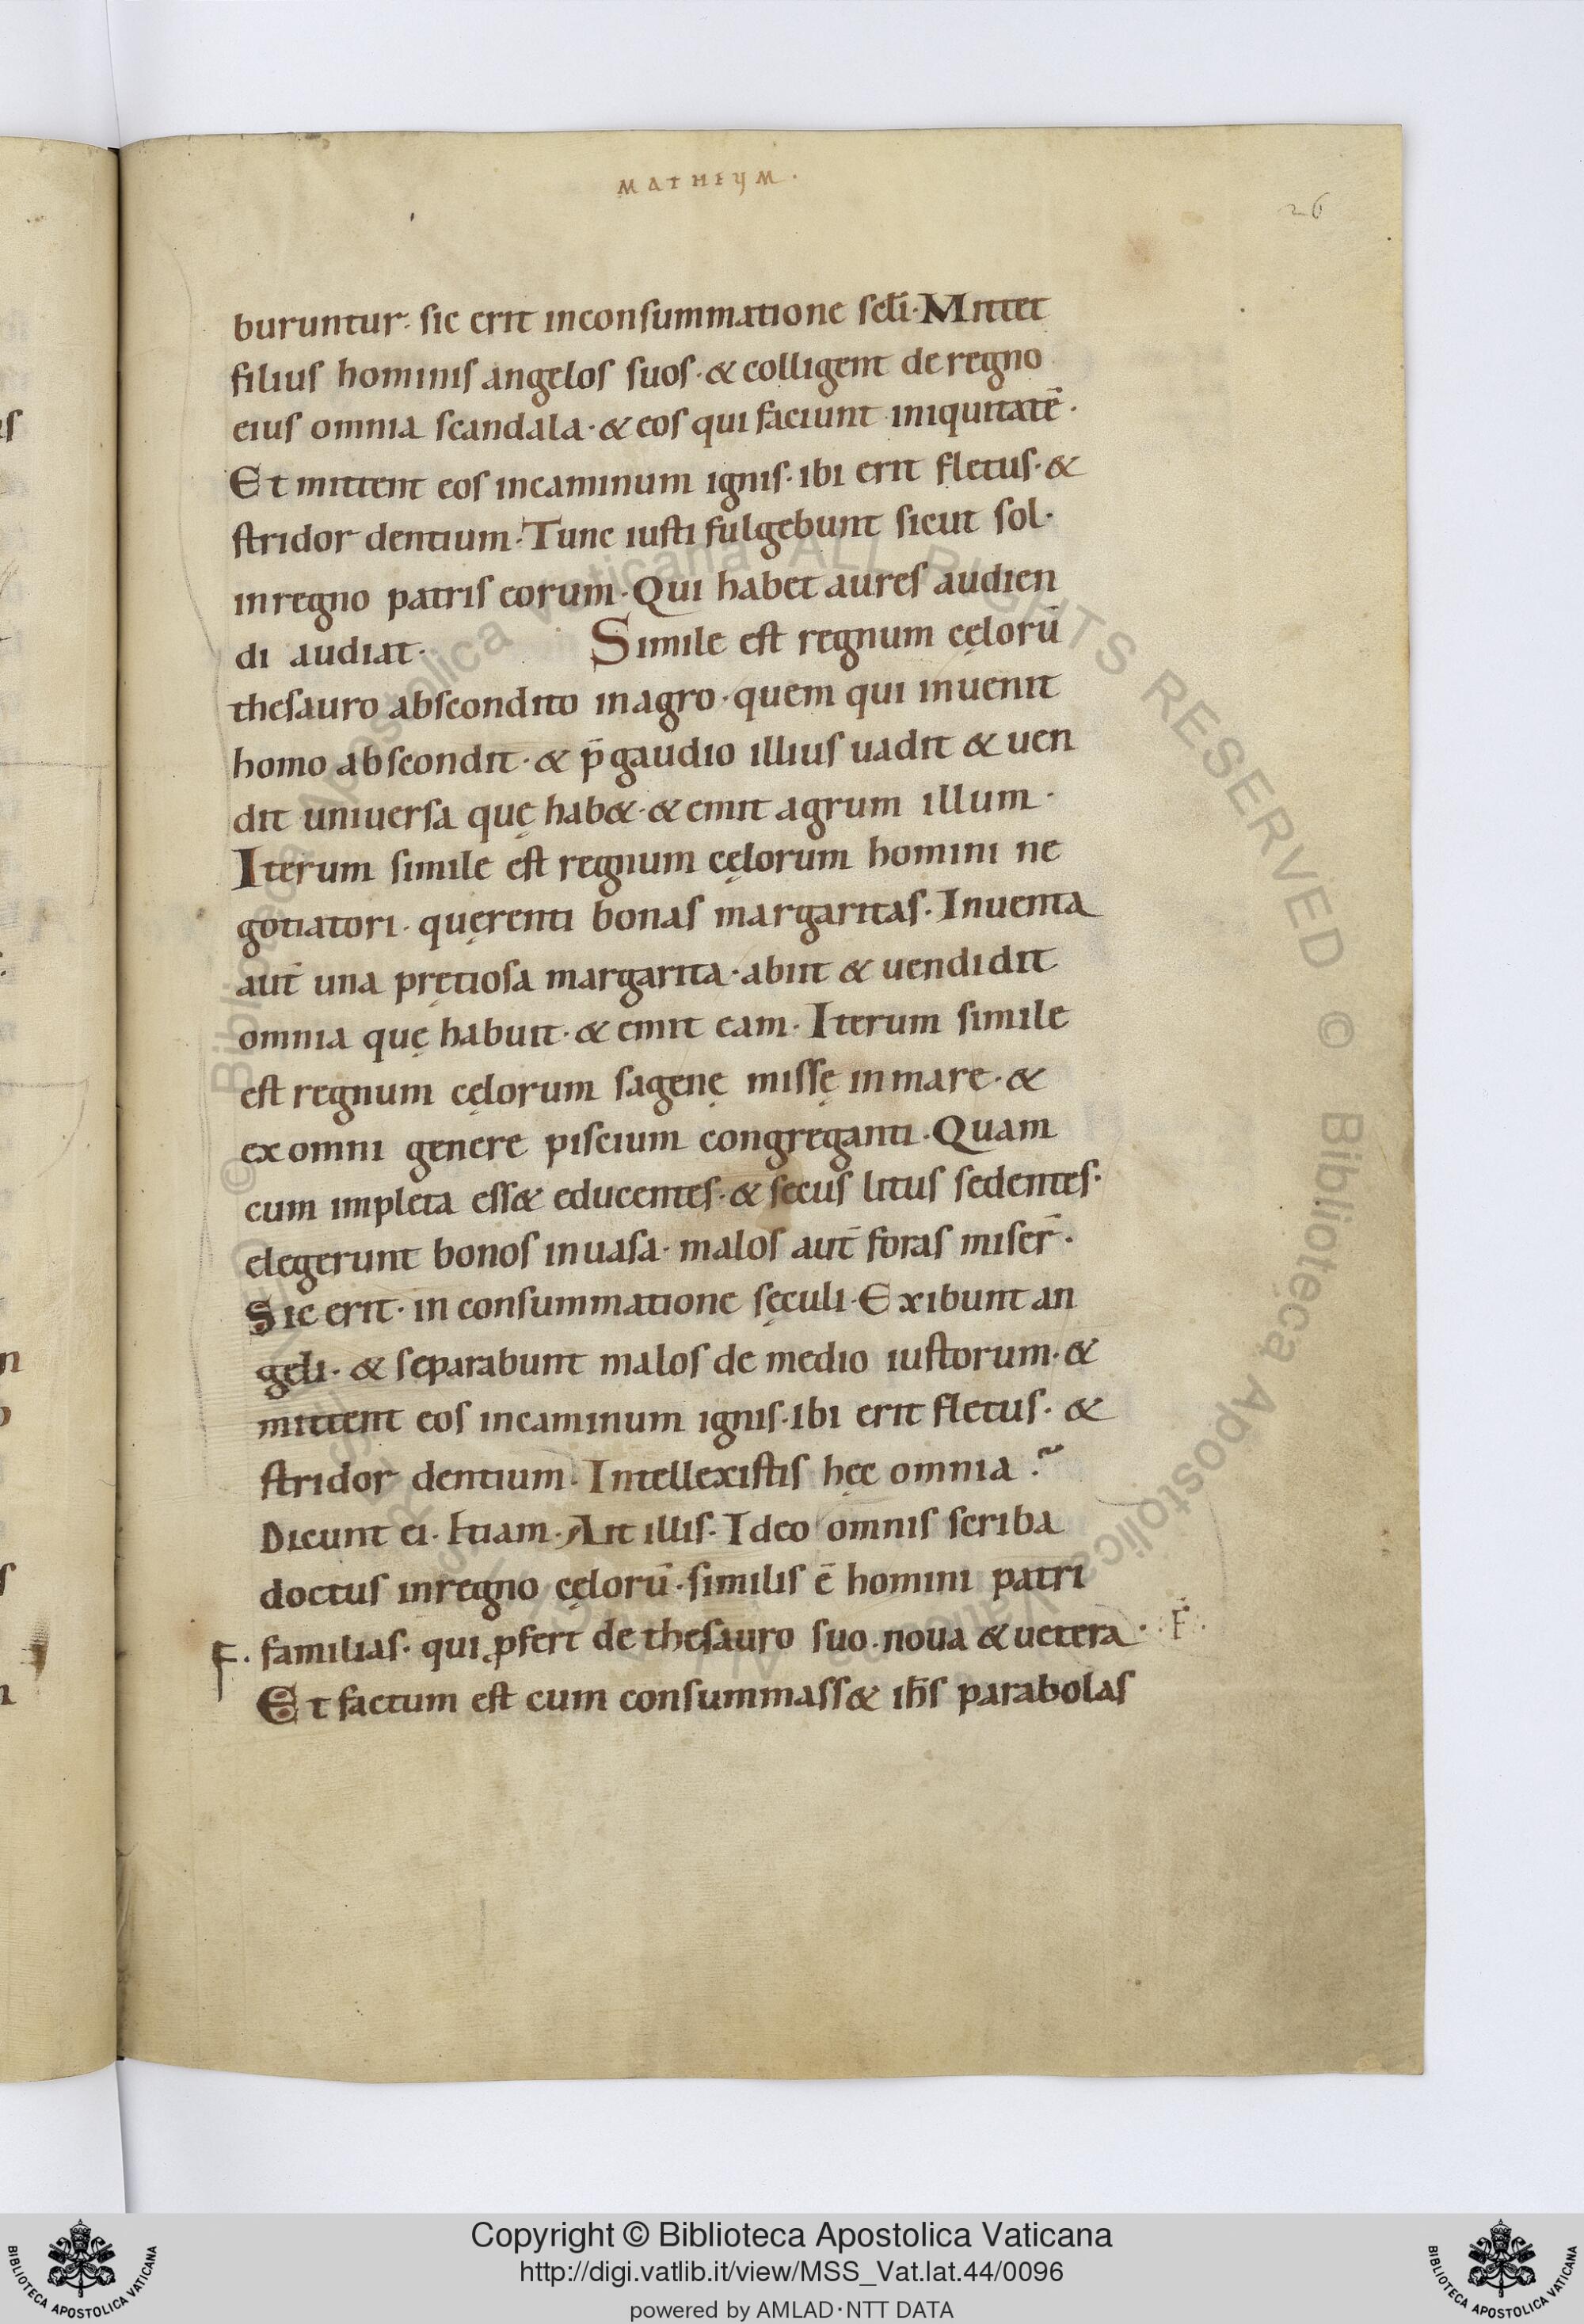 MATHEUM·
26
buruntur· sic erit inconsummatione sc̄li· Mittet
filius hominis angelos suos· & colligent de regno
eius omnia scandala· & eos qui faciunt iniquitatē·
Et mittent eos incaminum ignis· ibi erit fletus· &
stridor dentium· Tunc iusti fulgebunt sicut sol·
inregno patris eorum· Qui habet aures audien
di audiat· Simile est regnum cęlorū
thesauro abscondito inagro· quem qui inuenit
homo abscondit· & p̄ gaudio illius uadit & uen
dit uniuersa quę hab&· & emit agrum illum·
Iterum simile est regnum cęlorum homini ne
gotiatori· quęrenti bonas margaritas· Inuenta
aut̄ una pręciosa margarita· abiit & uendidit
omnia quę habuit· & emit eam· Iterum simile
est regnum cęlorum sagenę missę inmare· &
exomni genere piscium congreganti· Quam
cum impleta ess& educentes· & secus litus sedentes·
elegerunt bonos inuasa· malos aut̄ foras miser̄·
Sic erit· in consummatione sęculi· Exibunt an
geli· & separabunt malos de medio iustorum· &
mittent eos incaminum ignis· Ibi erit fletus· &
stridor dentium· Intellexistis hęc omnia?
Dicunt ei· Etiam· Ait illis· Ideo omnis scriba
doctus inregno cęlorū· similis ē homini patri
F· familias· qui ꝓfert de thesauro suo· noua & uetera· ·F·
Et factum est cum consummass& ih̄s parabolas
© Biblioteca Apostolica Vaticana ALL RIGHTS RESERVED © Biblioteca Apostolica Vaticana ALL RIGHTS RESERVED
Copyright © Biblioteca Apostolica Vaticana
http://digi.vatlib.it/view/MSS_Vat.lat.44/0096
powered by AMLAD·NTT DATA
BIBLIOTECA APOSTOLICA VATICANA
BIBLIOTECA APOSTOLICA VATICANA